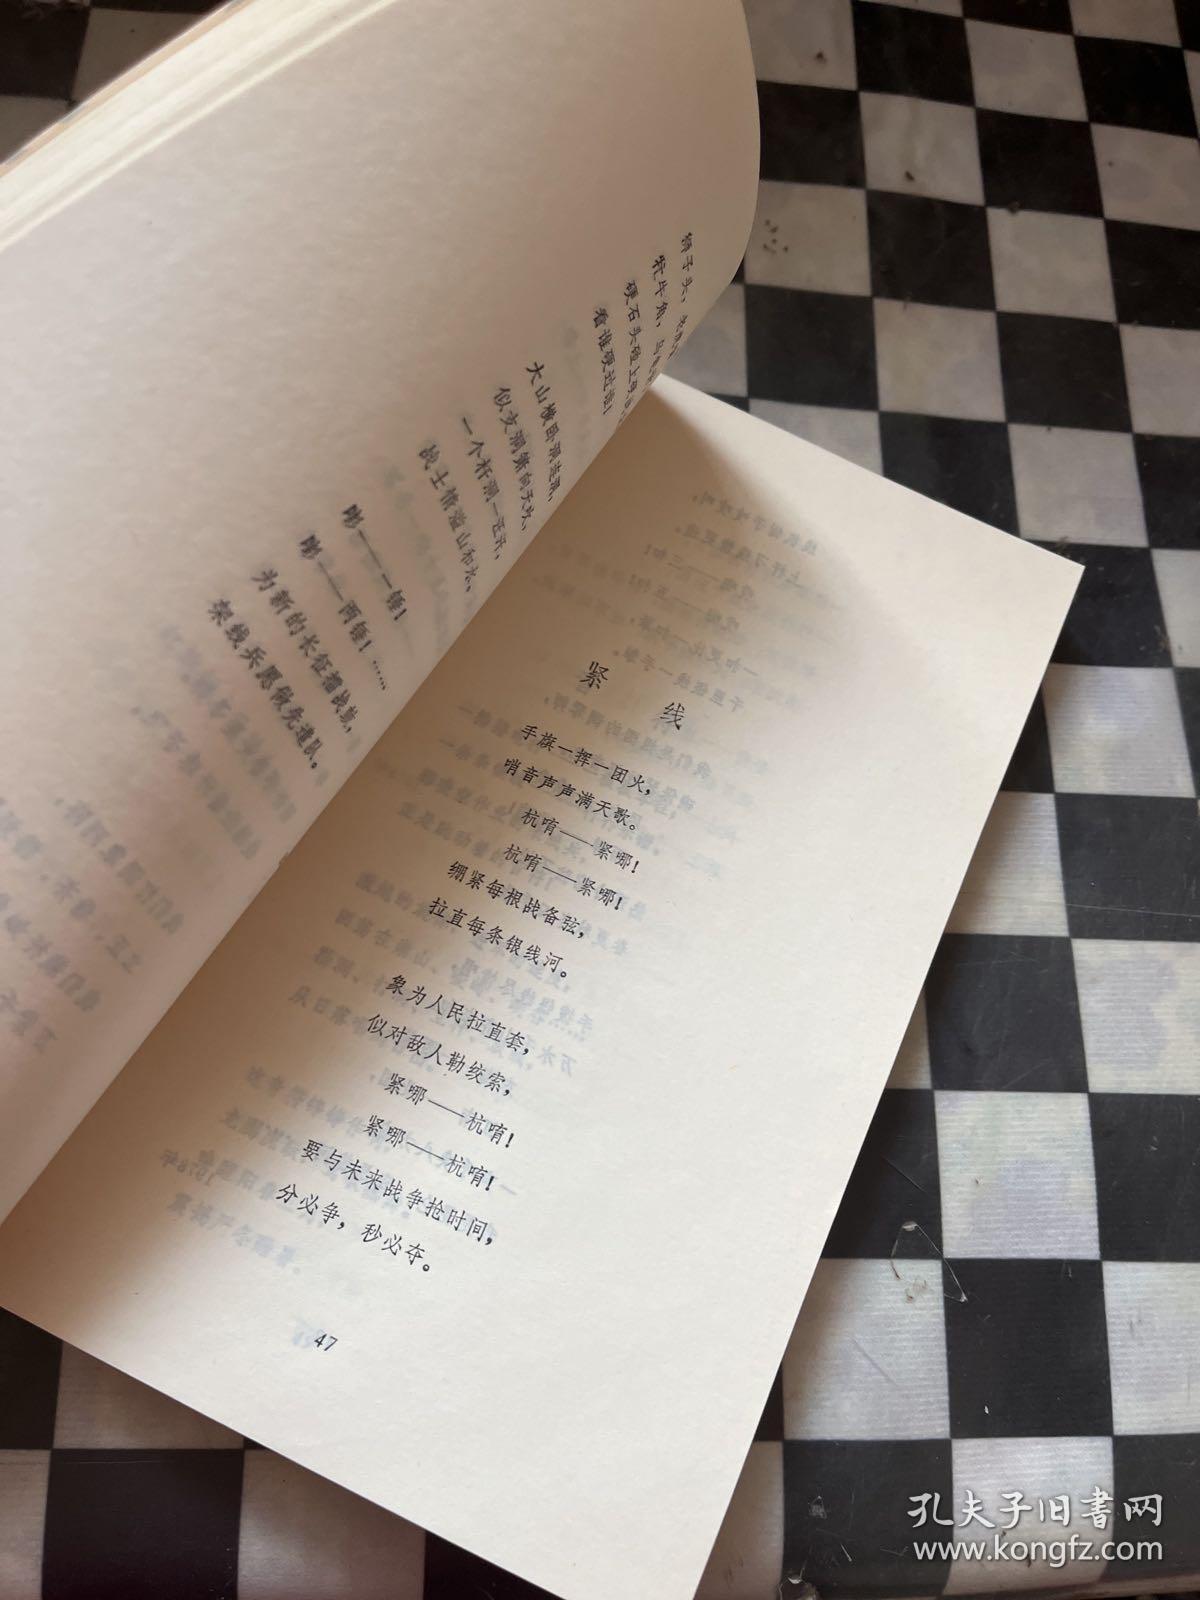 硬石头碰上
看谁硬过谁!
大山横卧洞连洞,
一个杆洞一
战士情溢山和水。
嘭——一锤!
嘭——两锤!……
为新的长征擂战鼓,
架线兵愿做先遣队。
紧线
手旗一挥一团火,
哨音声声满天歌。
杭唷——紧哪!
杭唷——紧哪!
绷紧每根战备弦,
拉直每条银线河。
象为人民拉直套,
似对敌人勒绞索,
紧哪——杭唷!
紧哪——杭唷!
要与未来战争抢时间,
分必争,秒必夺。
47
孔夫子旧书网
www.kongfz.com